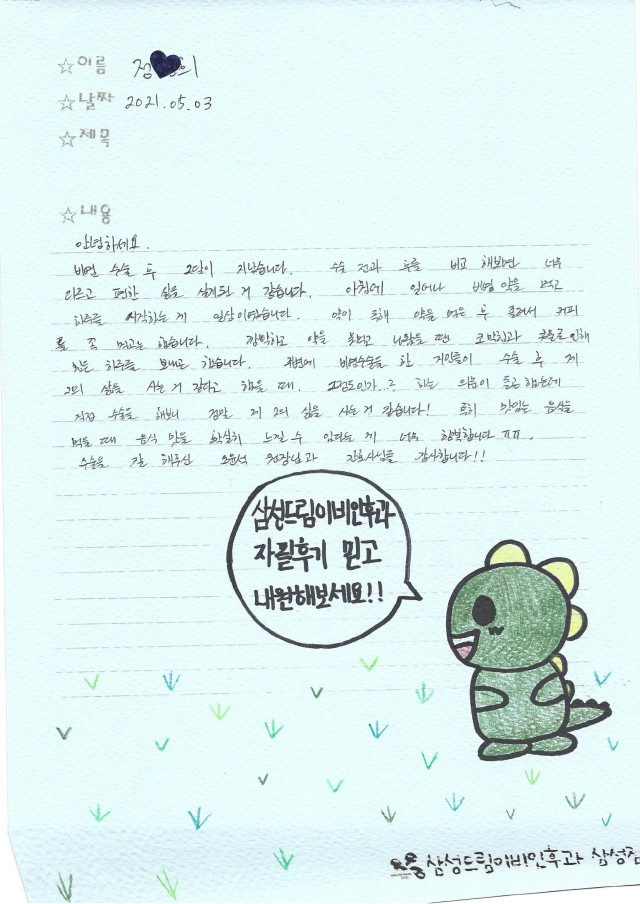 ☆이름 정 희
☆날짜 2021.05.03
☆제목
☆내용
안녕하세요.
비염 수술 후 2달이 지났습니다. 수술 전과 후를 비교 해보면 너무
다르고 편한 삶을 살게된 거 같습니다. 아침에 일어나 비염 약을 먹고
하루를 시작하는 게 일상이었습니다. 약이 독해 약을 먹은 후 졸려서 커피
를 꼭 먹고는 했습니다. 깜박하고 약을 못먹고 나왔을 땐 코막힘과 콧물로 인해
하루를 보내곤 했습니다. 주변에 비염수술을 한 지인들이 수술 후 제
2의 삶을 사는 거 같다고 했을 때. 그정도인가..? 하는 의문이 들곤 했는데
직접 수술을 해보니 정말 제 2의 삶을 사는 거 같습니다! 특히 맛있는 음식을
먹을 때 음식 맛을 확실히 느낄수 있다는 게 너무 행복합니다 ㅠㅠ.
수술을 잘 해주신 조윤석 원장님과 간호사님들 감사합니다!!
삼성드림이비인후과
자필후기 믿고
내원해보세요!!
삼성드림이비인후과 삼성점